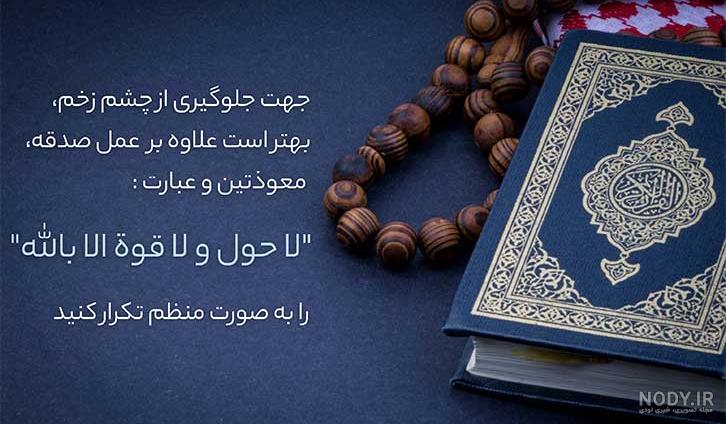 جهت جلوگیری از چشم زخم،
بهتر است علاوه بر عمل صدقه،
معوذتین و عبارت :
"لا حول و لا قوة الا بالله"
را به صورت منظم تکرار کنید
NODY.IR
مجله تصویری، خبری نودی